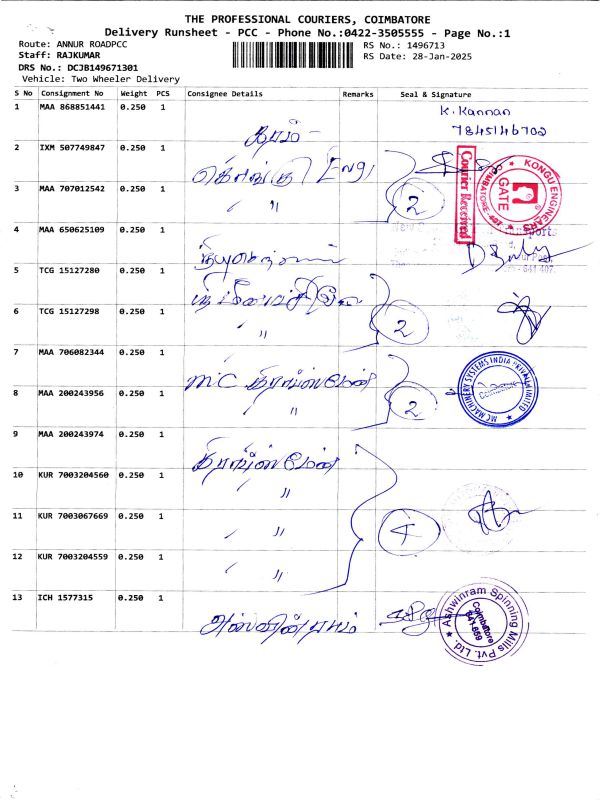 THE PROFESSIONAL COURIERS, COIMBATORE
Delivery Runsheet - PCC - Phone No.:0422-3505555 - Page No.:1
Route: ANNUR ROADPCC
RS No.: 1496713
Staff: RAJKUMAR
RS Date: 28-Jan-2025
DRS No.: DCJB149671301
Vehicle: Two Wheeler Delivery
S No Consignment No Weight PCS Consignee Details Remarks Seal & Signature
1 MAA 868851441 0.250 1 K. Kannan
7845146702
2 IXM 507749847 0.250 1
Engg
3 MAA 707012542 0.250 1 " 2
KONGU ENGINEARS
GATE
COIMBATORE-407
Courier Received
4 MAA 650625109 0.250 1
5 TCG 15127280 0.250 1
6 TCG 15127298 0.250 1 " 2
7 MAA 706082344 0.250 1
MC
8 MAA 200243956 0.250 1 " 2
MC MACHINERY SYSTEMS INDIA PRIVATE LIMITED
Coimbatore
9 MAA 200243974 0.250 1
10 KUR 7003204560 0.250 1 "
11 KUR 7003067669 0.250 1 " 4
12 KUR 7003204559 0.250 1 "
13 ICH 1577315 0.250 1
Ashwinram Spinning Mills Pvt. Ltd.
Coimbatore
641.659